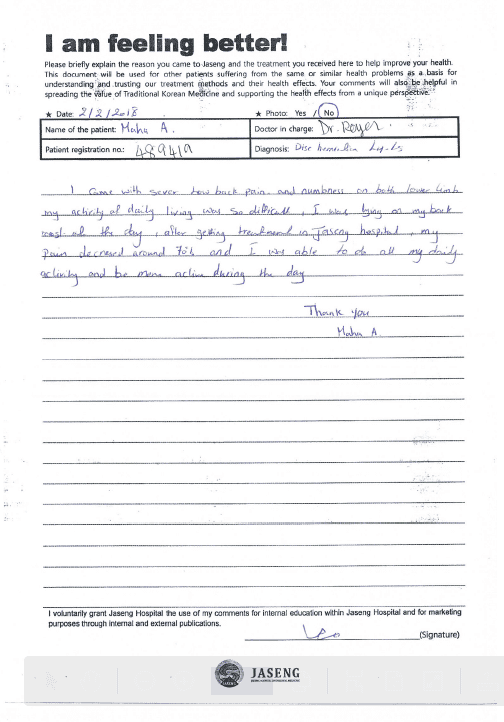 I am feeling better!
Please briefly explain the reason you came to Jaseng and the treatment you received here to help improve your health.
This document will be used for other patients suffering from the same or similar health problems as a basis for
understanding and trusting our treatment methods and their health effects. Your comments will also be helpful in
spreading the value of Traditional Korean Medicine and supporting the health effects from a unique perspective.
★ Date: 2/2/2018 ★ Photo: Yes / No
Name of the patient: Maha A. Doctor in charge: Dr. Royer
Patient registration no.: 489419 Diagnosis: Disc herniation L4-L5
I came with sever low back pain and numbness on both lower limb
my activity of daily living was so difficult, I was lying on my back
most of the day, after getting treatment in Jaseng hospital, my
pain decreased around 70% and I was able to do all my daily
activity and be more active during the day
Thank you
Maha A.
I voluntarily grant Jaseng Hospital the use of my comments for internal education within Jaseng Hospital and for marketing
purposes through internal and external publications.
(Signature)
JASENG